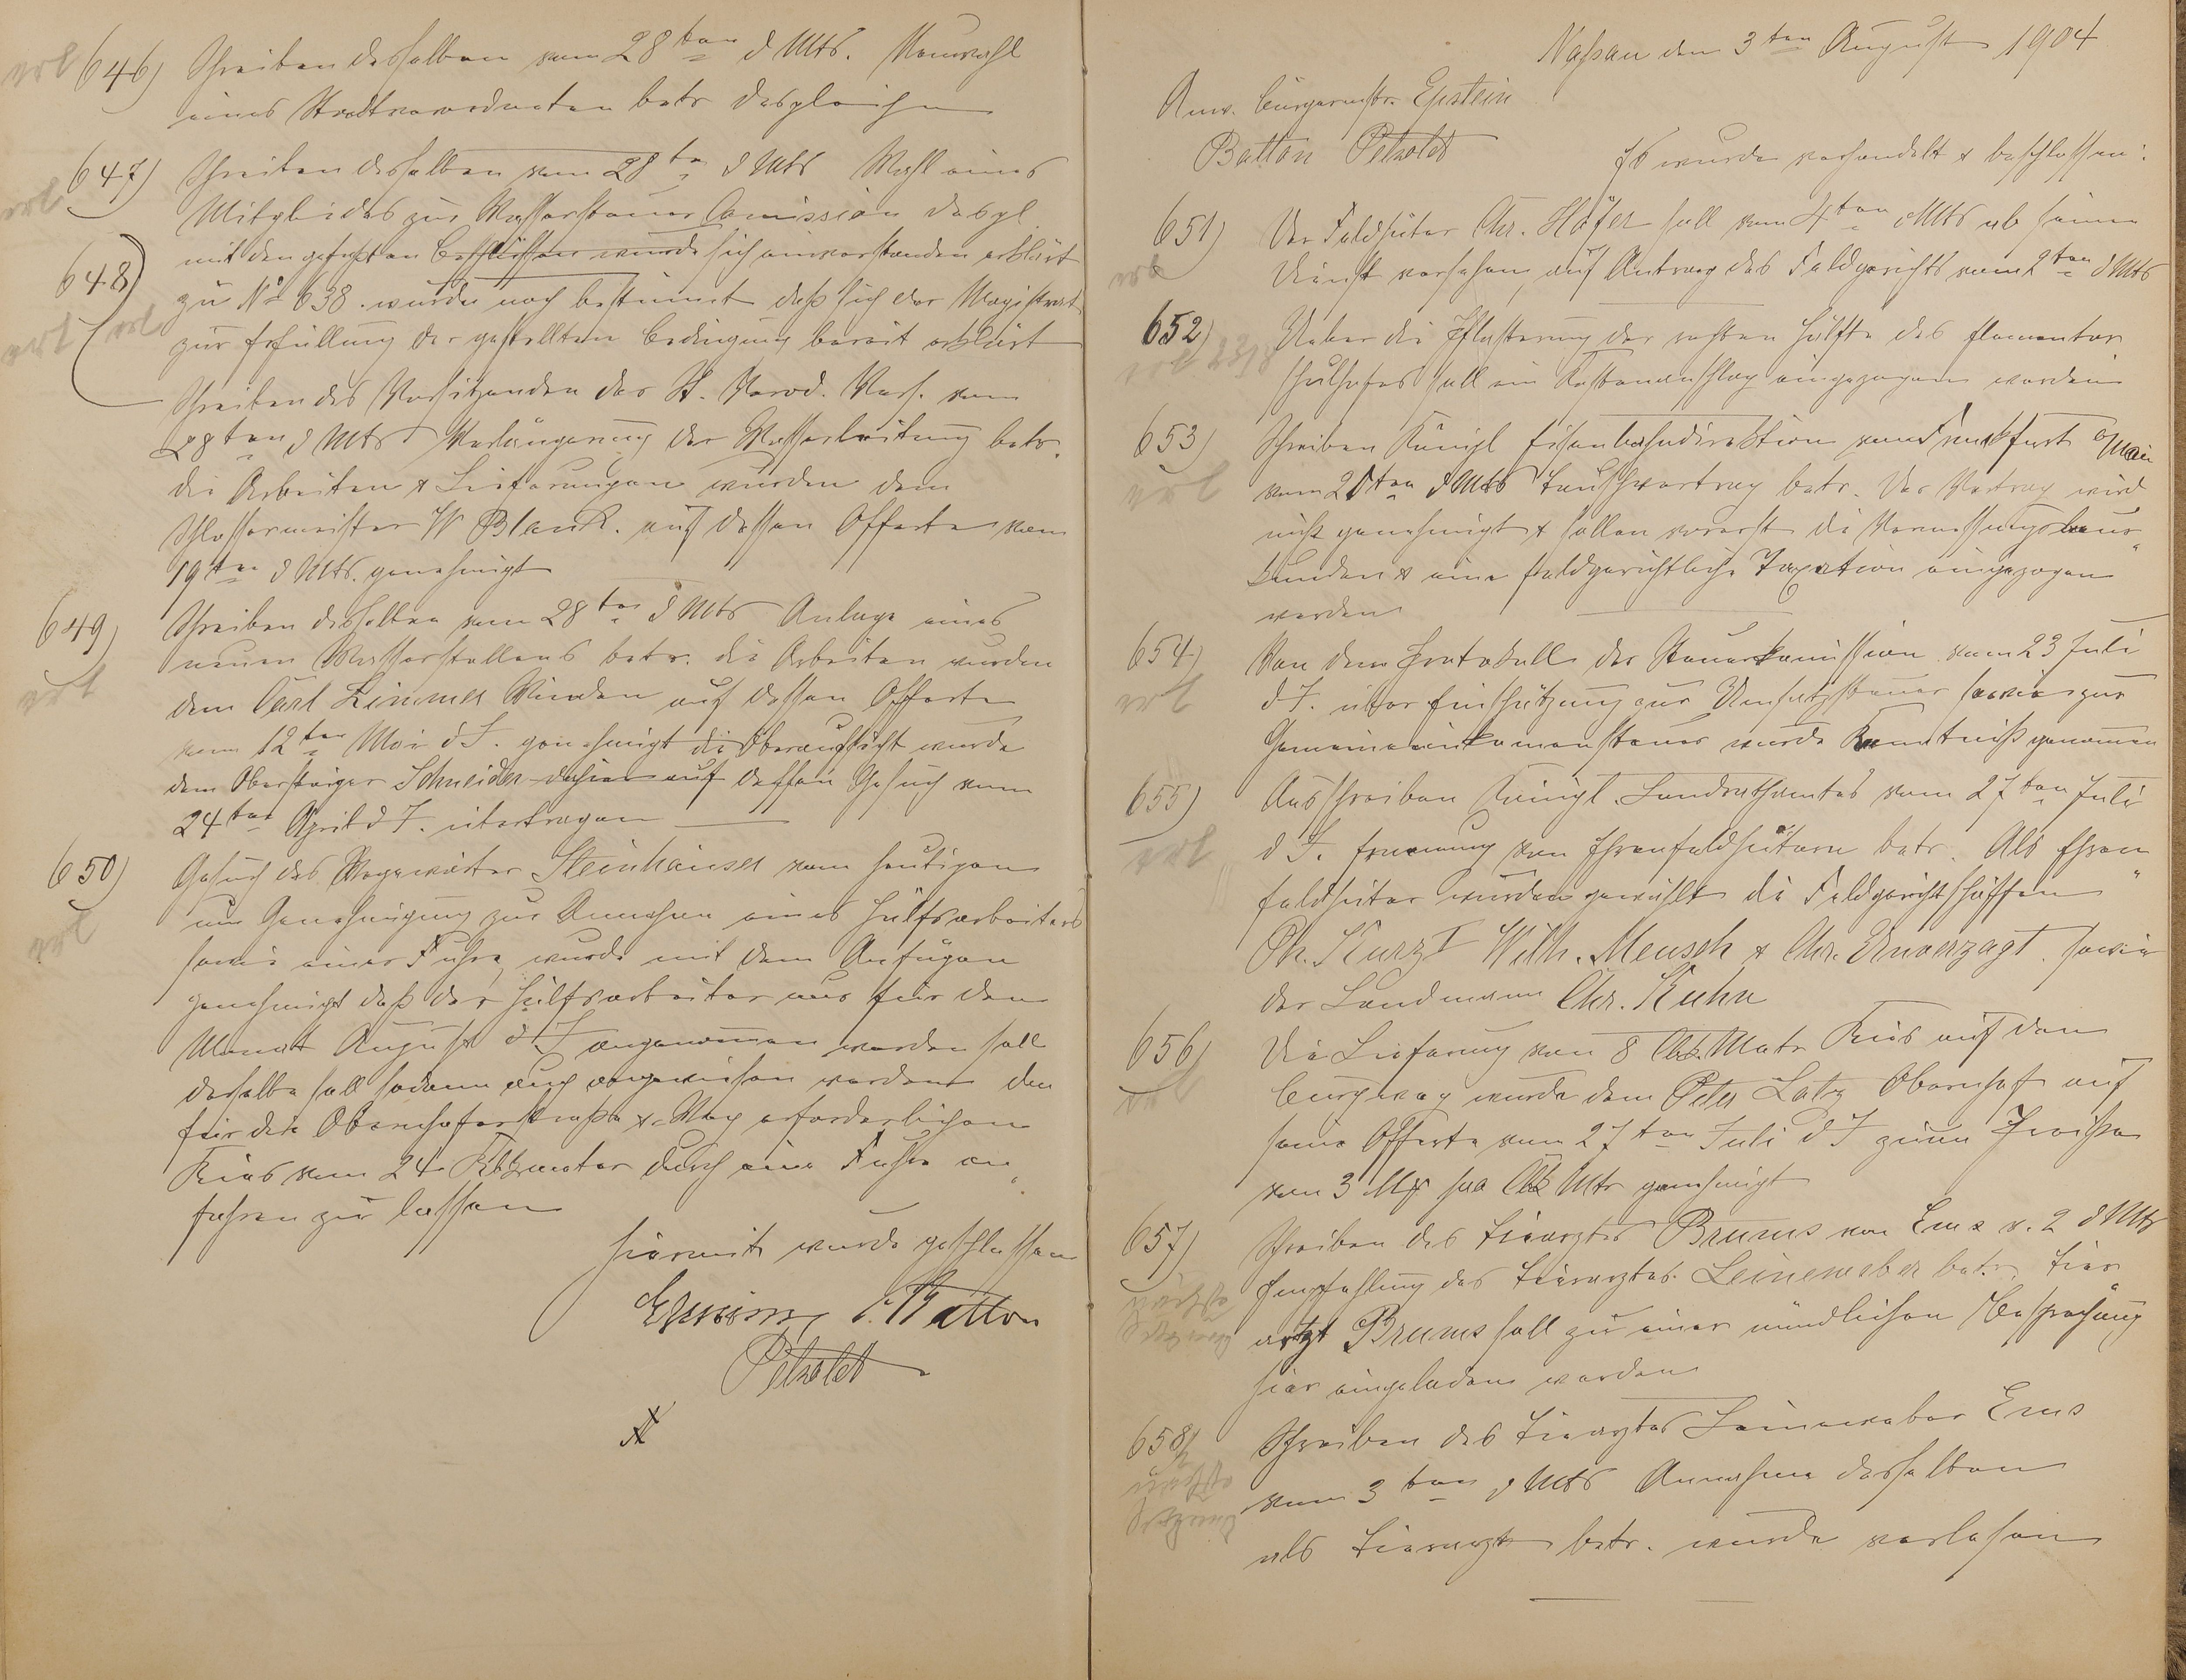 646) Schreiben desselben vom 28ten d Mts. Neuwahl
eines Stadtverordneten betr desgleichen
647) Schreiben desselben vom 28ten d Mts Wahl eines
Mitgliedes zur Wassersteuer Comission desgl.
mit den gefaßten Beschlüssen wurde sich einverstanden erklärt
648) zu No 638. wurde noch bestimmt daß sich der Magistrat
zur Erfüllung der gestellten Bedingung bereit erklärt
Schreiben des Vorsitzenden der St. Verord. Vers. vom
28ten d Mts Verlängerung der Wasserleitung betr.
die Arbeiten & Lieferungen wurden dem
Schlossermeister W Blank. auf dessen Offerte vom
19ten d Mts. genehmigt
649) Schreiben desselben vom 28ten d Mts Anlage eines
neuen Wasserstollens betr. die Arbeiten wurden
dem Carl Linnner Winden auf dessen Offerte
vom 12ten Mai d J. genehmigt die Oberaufsicht wurde
dem Obersteiger Schneider dahier auf dessen Gesuch vom
24ten April d J. übertragen
650) Gesuch des Wegewärter Steinhäuser vom heutigen
um Genehmigung zur Annahme eines Hülfsarbeiters
sowie einer Fuhre, wurde mit dem Anfügen
genehmigt daß der Hülfsarbeiter nur für den
Monat August d J angenommen werden soll
derselbe soll sodann auch angewiesen werden den
für die Obernhoferstraße & Weg erforderlichen
Kies von 24 Kbkmeter durch eine Fuhre an„
fahren zu lassen
hiermit wurde geschlossen
Batton
Petzoldt
Nassau den 3ten August 1904
Anw. Bürgermstr. Epstein
Batton Petzoldt
Es wurde verhandelt & beschlossen:
651) Der Feldhüter Chr. Höfer soll vom 4ten d Mts ab seinen
Dienst versehen, auf Antrag des Feldgerichts vom 2ten d Mts
652) Ueber die Pflasterung der rechten Hälfte des Elementar
schulhofes soll ein Kostenanschlag eingezogen werden
653) Schreiben Königl Eisenbahndirektion von Frankfurt a/Main
vom 20ten d Mts Tauschvertrag betr. Der Vertrag wird
nicht genehmigt & sollen vorerst die Vermessungs
kunden & eine feldgerichtliche Taxation eingezogen
werden
654) Von dem Protokoll der Steuerkomission vom 23 Juli
d J. über Einschätzung zur Umsatzsteuer sowie zur
Gemeindeeinkommensteuer wurde Kenntniß genommen
655) Ausschreiben Königl. Landrathsamtes vom 27ten Juli
d J. Ernennung von Ehrenfeldhütern betr. Als Ehren„
feldhüter wurden gewählt die Feldgerichtsschöffen
Ph. Kurz I Wilh. Meusch & Chr. Unverzagt. sowie
der Landmann Chr. Kuhn
656) Die Lieferung von 8 Cbk Mtr Kies auf den
Burgweg wurde dem Peter Latz Obernhof auf
seine Offerte vom 27ten Juli d J zum Preise
von 3 Mk pro Cbk Mtr genehmigt
657) Schreiben des Tierarztes Bruns von Ems v. 2 d Mts
Empfehlung des Tierarztes Leineweber betr. Tier„
arzt Bruns soll zu einer mündlichen Besprechung
hier eingeladen werden
658) Schreiben des Tierarztes Leineweber Ems
vom 3ten d Mts Annahme desselben
als Tierarzt betr. wurde verlesen